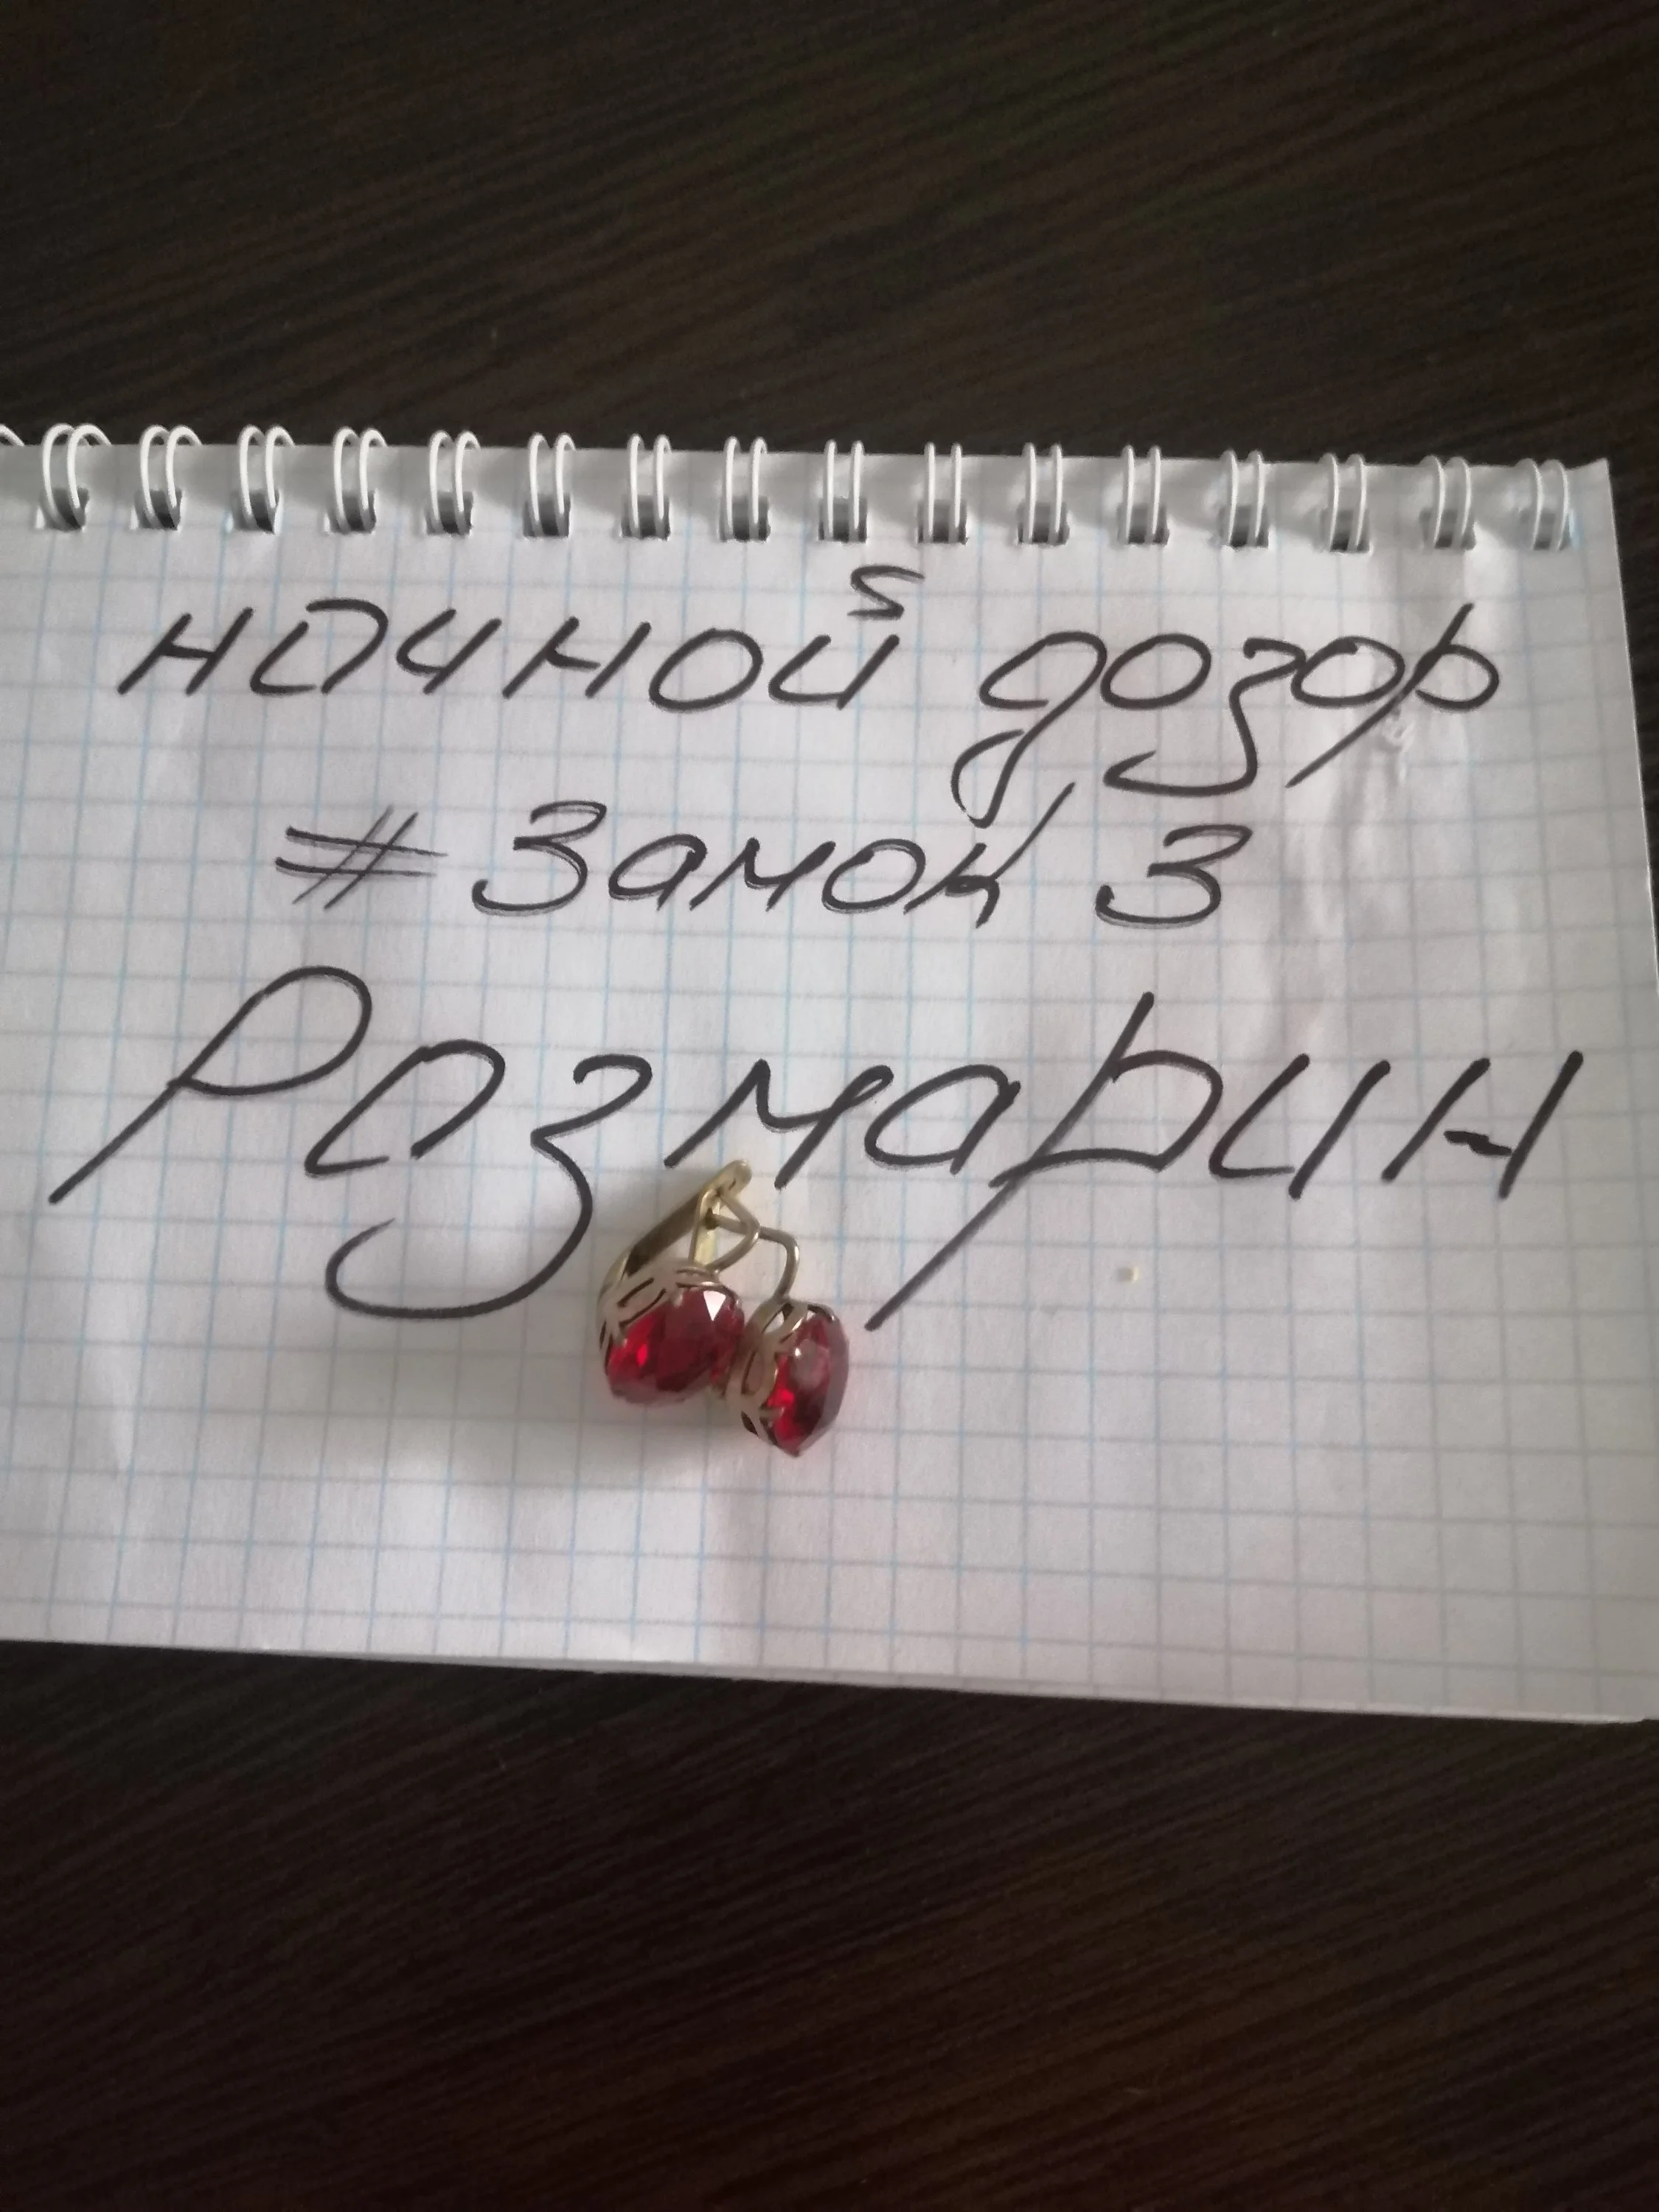 ночной дозор
# Замок 3
Розмарин